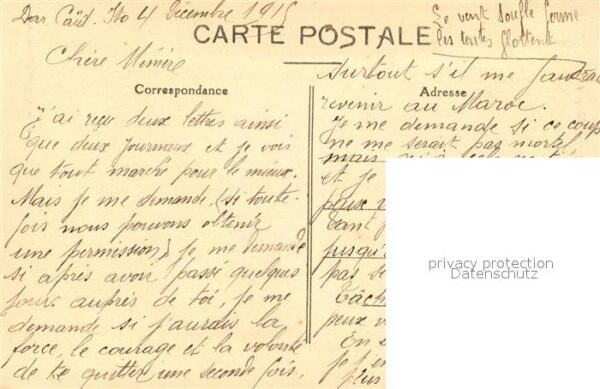 Dar Caïd. Ito 4 Décembre 1915
Le vent souffle ferme
les tentes flottent
CARTE POSTALE
Chère Mémère
Correspondance
J'ai reçu deux lettres ainsi
que deux journaux et je vois
que tout marche pour le mieux.
Mais je me demande (si toute-
fois nous pouvons obtenir
une permission) je me demande
si après avoir passé quelques
jours auprès de toi, je me
demande si j'aurais la
force, le courage et la volonté
de te quitter une seconde fois.
Surtout s'il me faudra
Adresse
revenir au Maroc.
Je me demande si ce coup
ne me serait pas mortel
mais
et je
peux
Tant
jusqu'
pas se
Tâch
peux v
En
je t'en
plus
privacy protection
Datenschutz